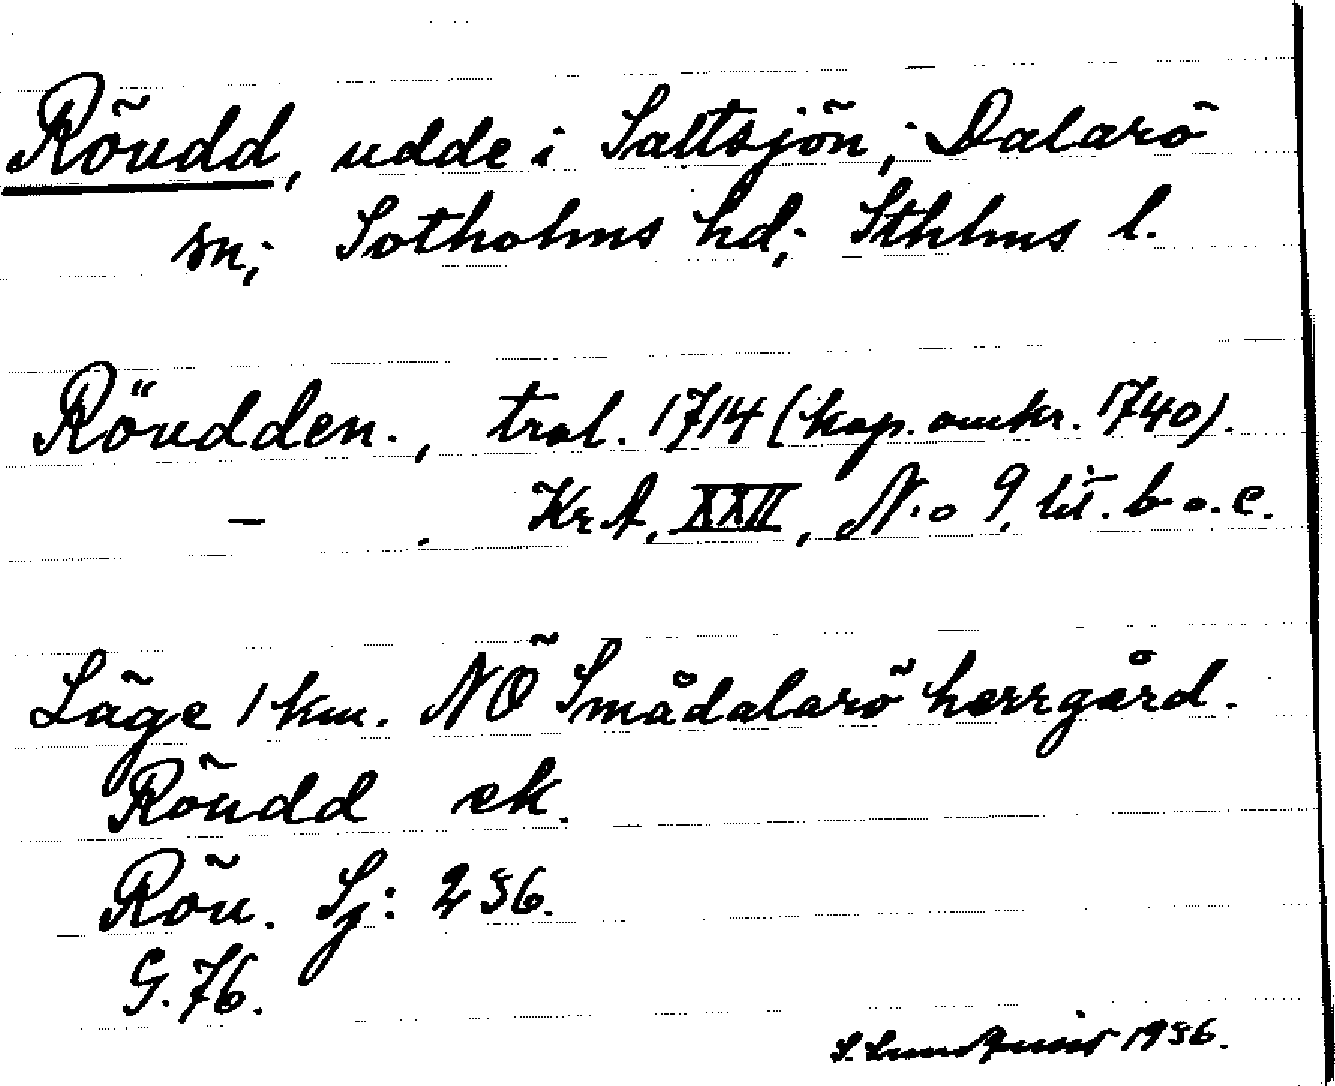 Röudd, udde i Saltsjön; Dalarö
sn; Sotholms hd; Sthlms l.
Röudden., trol. 1714 (kop. omkr. 1740).
— . Kr. A, XXII, N:o 9, lit. b o. c.
Läge 1 km. NÖ Smådalarö herrgård.
Röudd ek.
Röu. Sj: 236.
G. 76.
S. Lundqvist 1936.